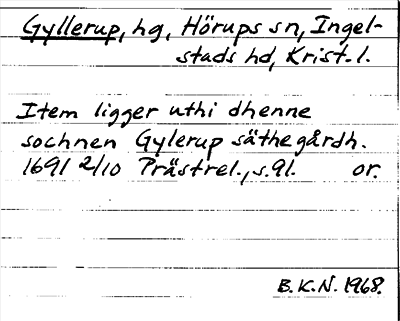 Gyllerup, hg, Hörups sn, Ingel-
stads hd, Krist. l.
Item ligger uthi dhenne
sochnen Gylerup säthegårdh.
1691 2/10 Prästrel., s. 91. or.
B.K.N. 1968.